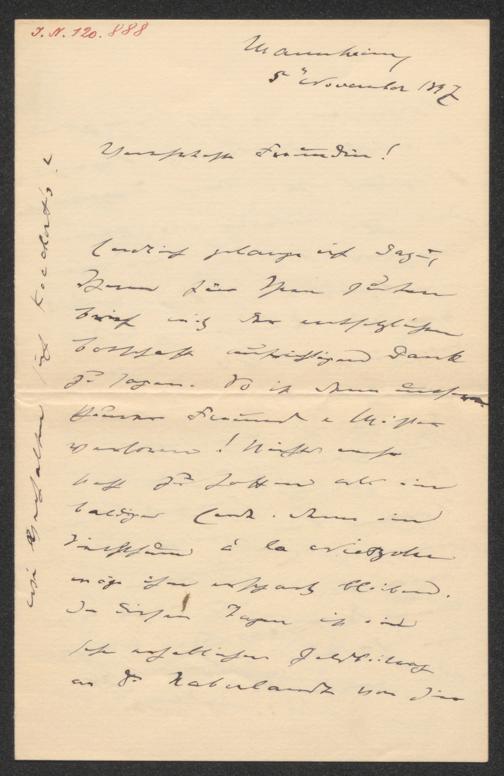 I.N. 120.888
Mannheim
5ten November 1897
Verehrteste Freundin!
Endlich gelange ich dazu,
Ihnen für Ihren
Brief mit der entsetzlichen
Botschaft aufrichtigen Dank
zu sagen. So ist denn unser
theurer Freund & Meister
verloren! Nichts mehr
zu hoffen als ein
baldiges Ende. Denn ein
à la Nietzsche
möge ihm erspart bleiben.
In diesen Tagen ist eine
an Dr. Haberlandt von hier